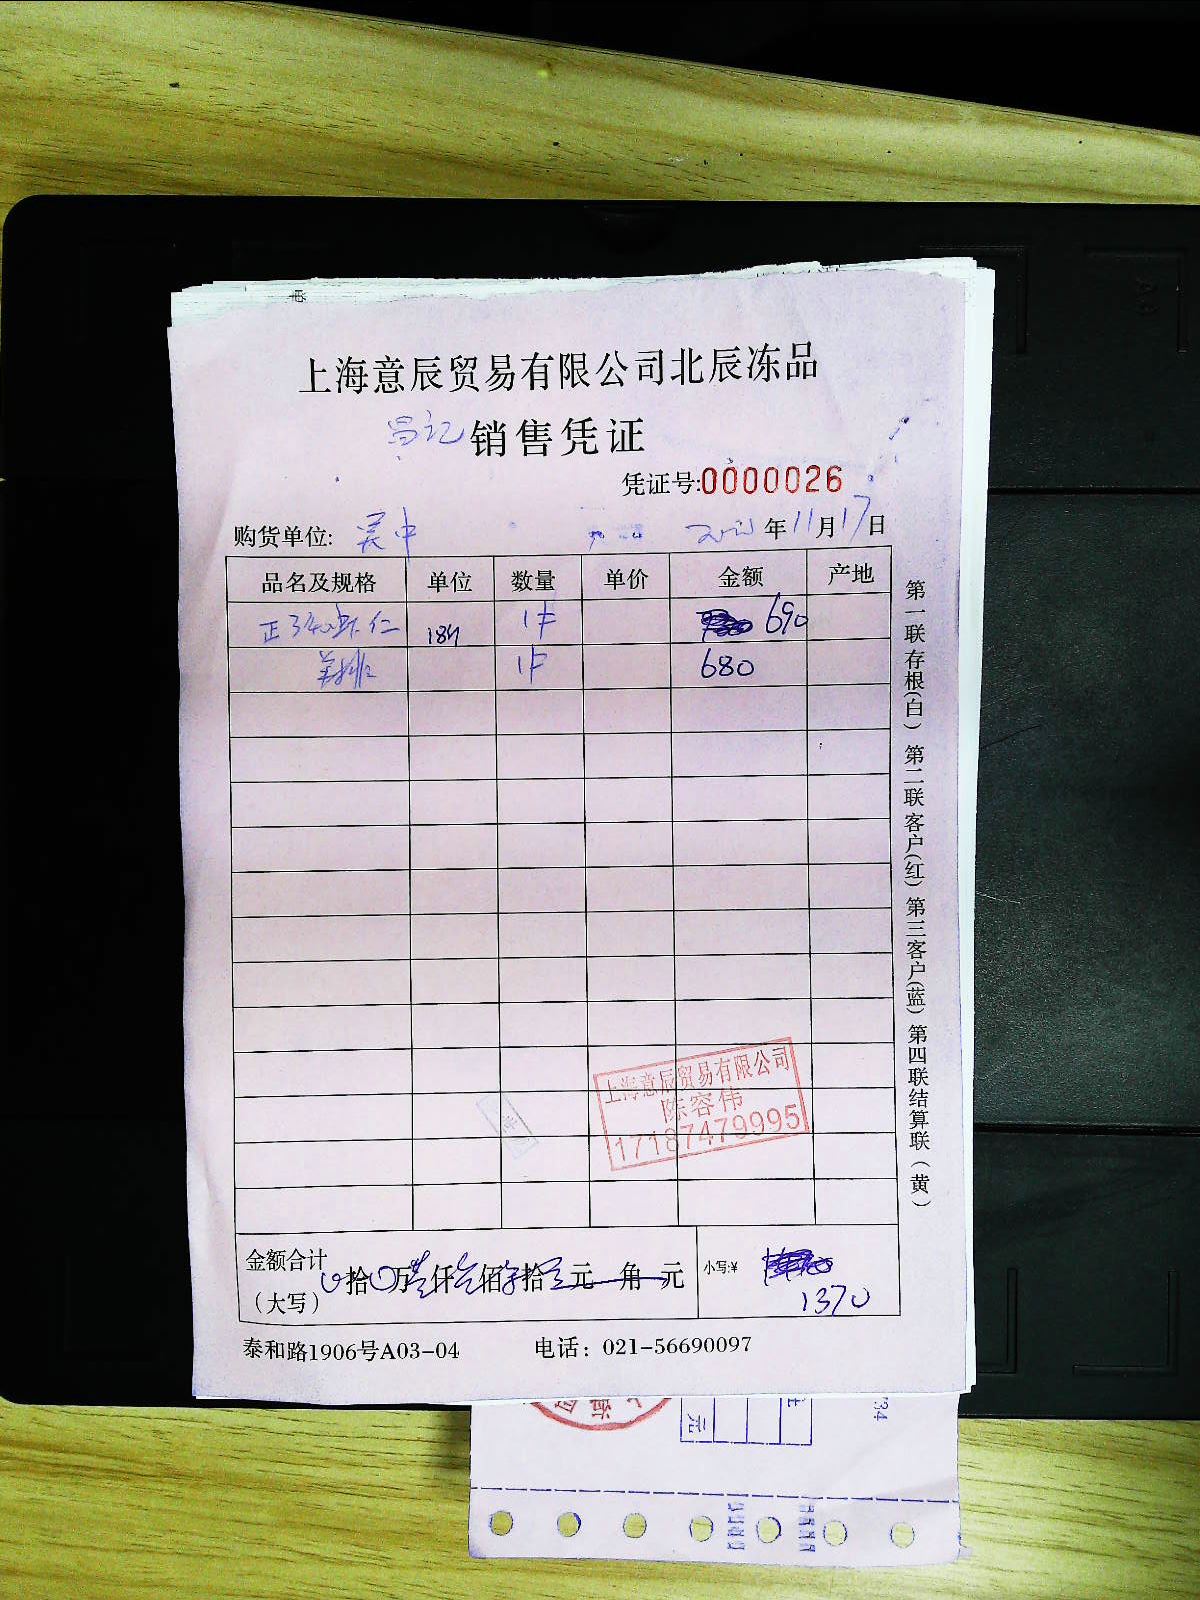 上海意辰贸易有限公司北辰冻品
销售凭证
凭证号:0000026
购货单位: 吴中 年11月17日
品名及规格 单位 数量 单价 金额 产地
虾仁 1件 690
羊排 1件 680
上海意辰贸易有限公司
陈容伟
17187479995
金额合计
（大写） 拾 万 仟 佰 拾 元 角 元
小写:¥ 1370
泰和路1906号A03-04 电话：021-56690097
第一联存根(白) 第二联客户(红) 第三客户(蓝) 第四联结算联(黄)